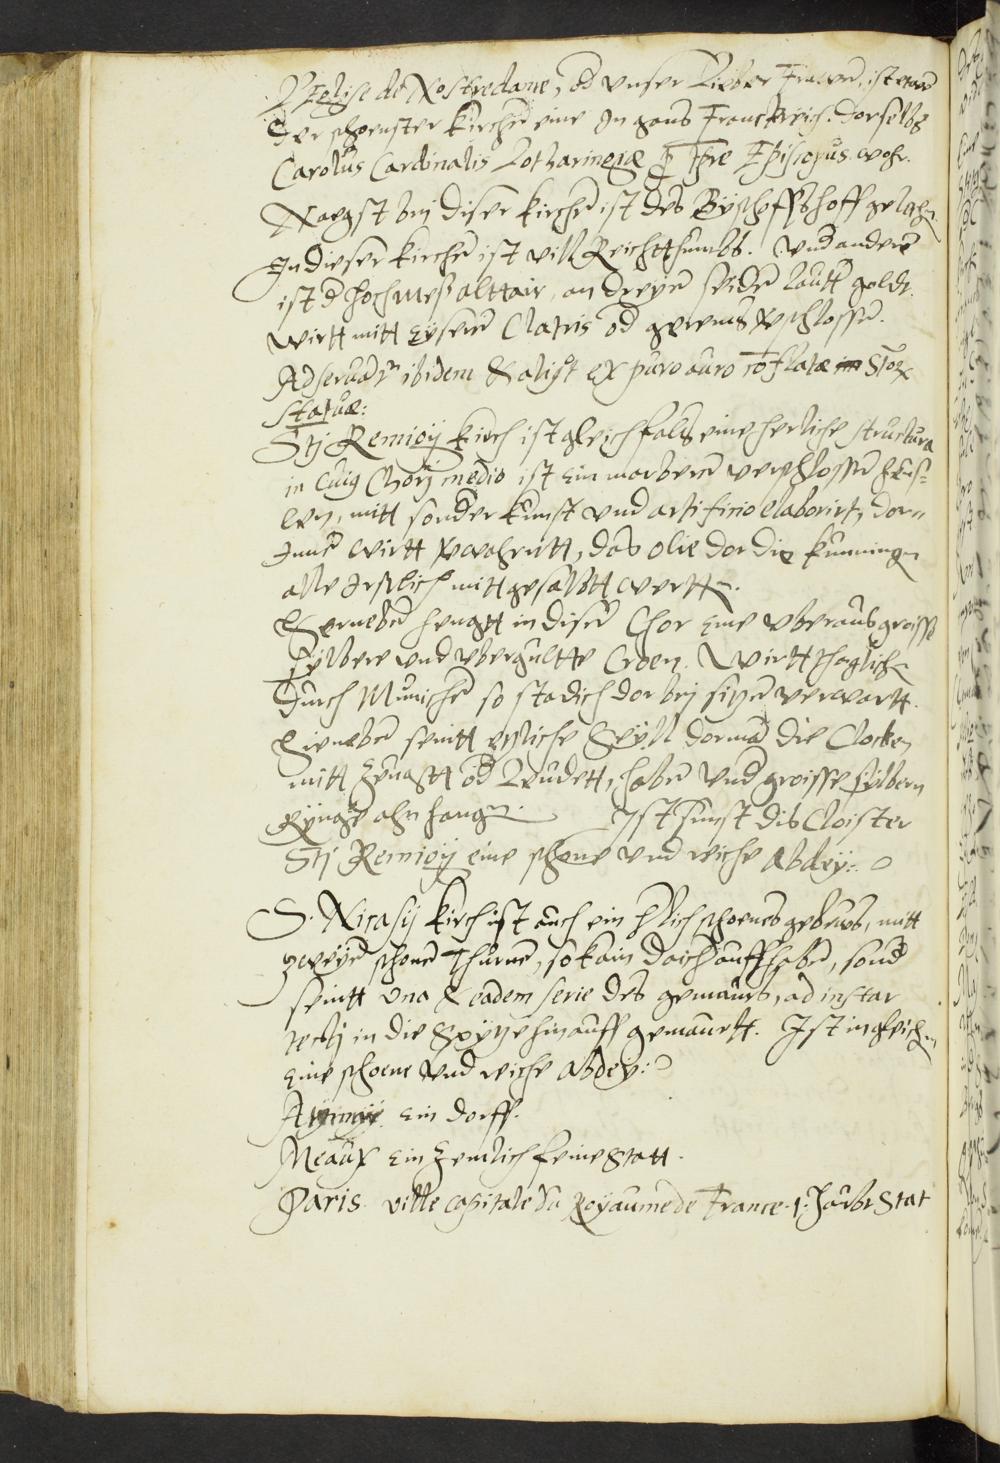 L'Eglise de Nostredame, od unser Lieber Frawen, ist etwan
Der schoenster kirchen eine In gans Franckreich. dorselbs
Carolus Cardinalis Lotharingiæ Episcopus wohr.
Naegst bey diser kirchen ist des Byschoffshoff gelegen
In dieser kirchen ist vill Reichtthumbs. Und andere
ist d hochmess alttair, an dreyen seiden lautter goldt
wirtt mitt Eyseren Clatris od gerembs verschlossen.
Adservantur ibidem & aliquot ex puro auro conflatæ
statuæ:
Sti Remigij kirch ist gleichfals eine herliche structura
in cuius Chori medio ist Ein marberen verschlossen heus-
len, mitt sonder kunst und artificio elaborirt, dar-
Innen wirtt verwahrett, das olie dar die kunningen
alle Jerstlich mitt gesalbtt wertten.
Herneben hengtt in disen Chor Eine uberaus groisse
sylbere und ubergultte Croen. Wirtt thaglichen
Durch Munichen so stadich dar bey sitzen verwartt.
Hieneben seintt etliche Seyll darman die Clocken
mitt Zeugtt od Leudett, haben und groisse sylbern
Rynge ahn hangen. Ist sunst dis Cloister
Sti Remigij eine schone und riche Abdey:
S. Nicasij kirch ist auch ein herlich schoenes gebews, mitt
zweyen schonen Thurnen, so kain dach auff haben, sond
seintt una & eadem serie des gemaurs, ad instar
tecti in die Spytze hinauff gemaurtt. Ist ingleichen
Eine schoene und riche Abdey:
Ein dorff.
Meaux Ein Zemlich feine Statt.
Paris. ville capitale du Royaume de France. 1. Haubt Stat